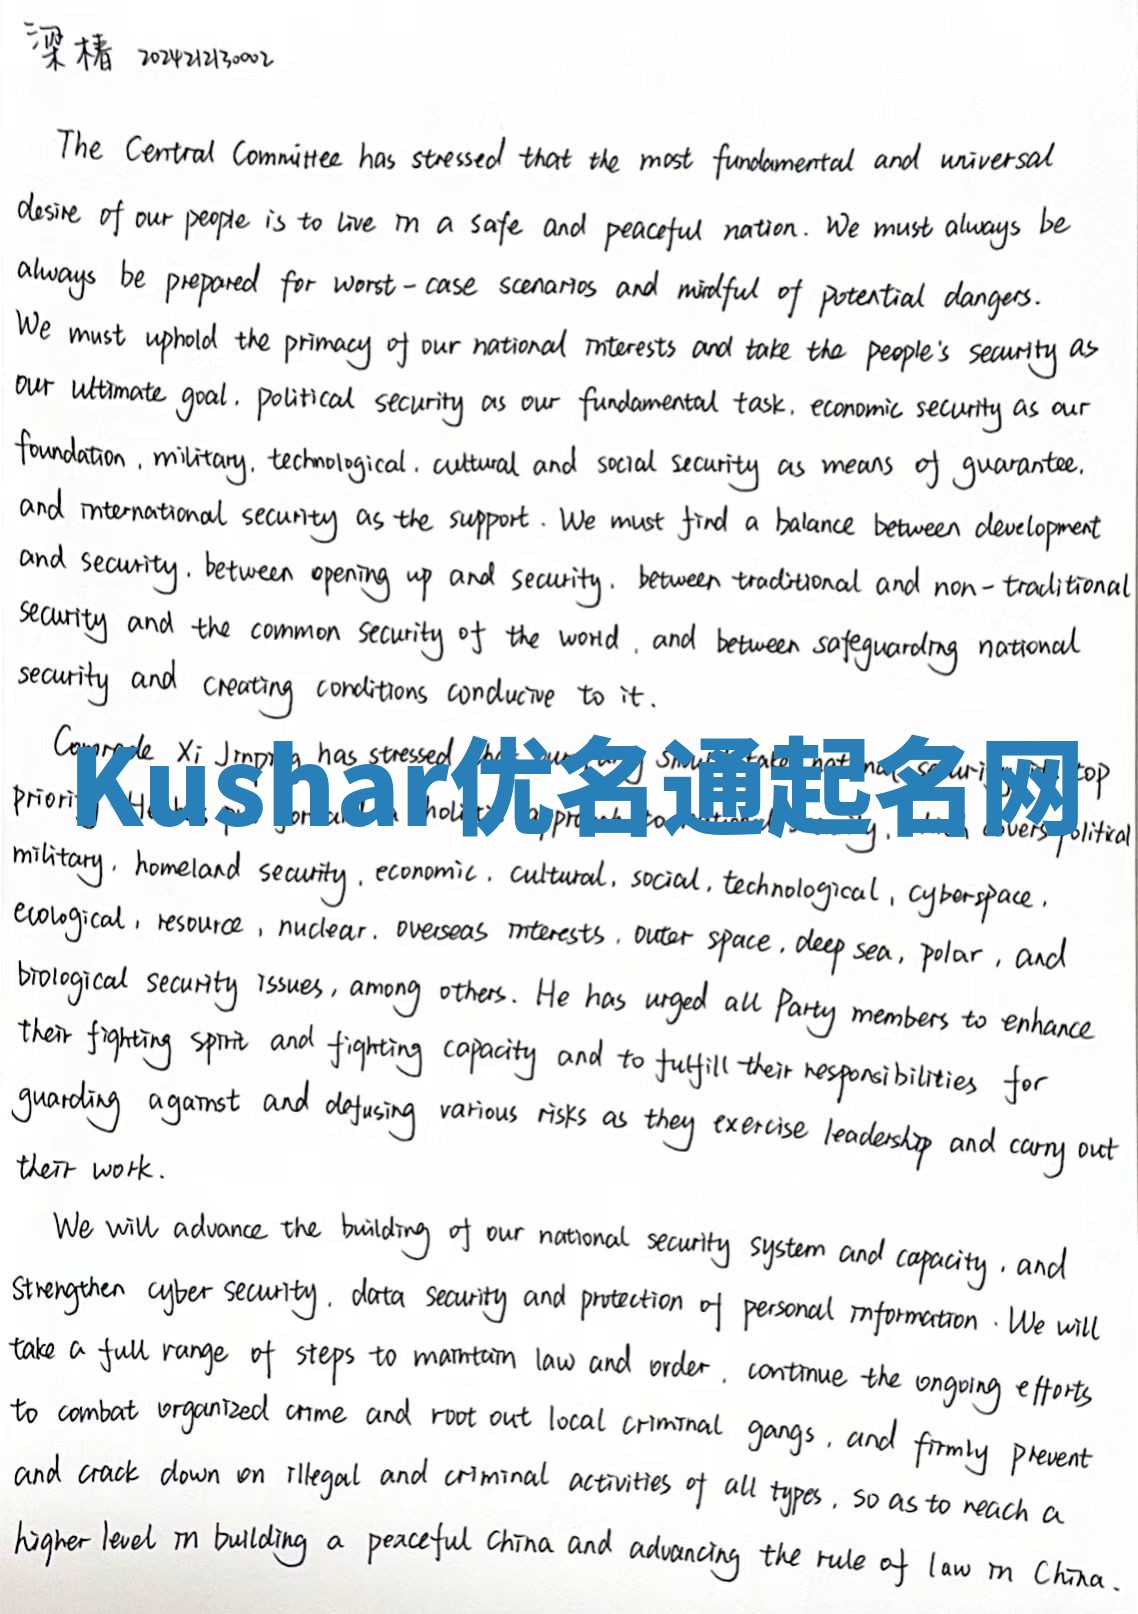 梁椿 2024212130002
The Central Committee has stressed that the most fundamental and universal
desire of our people is to live in a safe and peaceful nation. We must always be
always be prepared for worst-case scenarios and mindful of potential dangers.
We must uphold the primacy of our national interests and take the people's security as
our ultimate goal, political security as our fundamental task, economic security as our
foundation, military, technological, cultural and social security as means of guarantee,
and international security as the support. We must find a balance between development
and security, between opening up and security, between traditional and non-traditional
security and the common security of the world, and between safeguarding national
security and creating conditions conducive to it.
Comrade Xi Jinping has stressed take national security top
Kushar优名通起名网
priority holistic covers political
military, homeland security, economic, cultural, social, technological, cyberspace,
ecological, resource, nuclear, overseas interests, outer space, deep sea, polar, and
biological security issues, among others. He has urged all Party members to enhance
their fighting spirit and fighting capacity and to fulfill their responsibilities for
guarding against and defusing various risks as they exercise leadership and carry out
their work.
We will advance the building of our national security system and capacity, and
strengthen cyber security, data security and protection of personal information. We will
take a full range of steps to maintain law and order, continue the ongoing efforts
to combat organized crime and root out local criminal gangs, and firmly prevent
and crack down on illegal and criminal activities of all types, so as to reach a
higher level in building a peaceful China and advancing the rule of law in China.